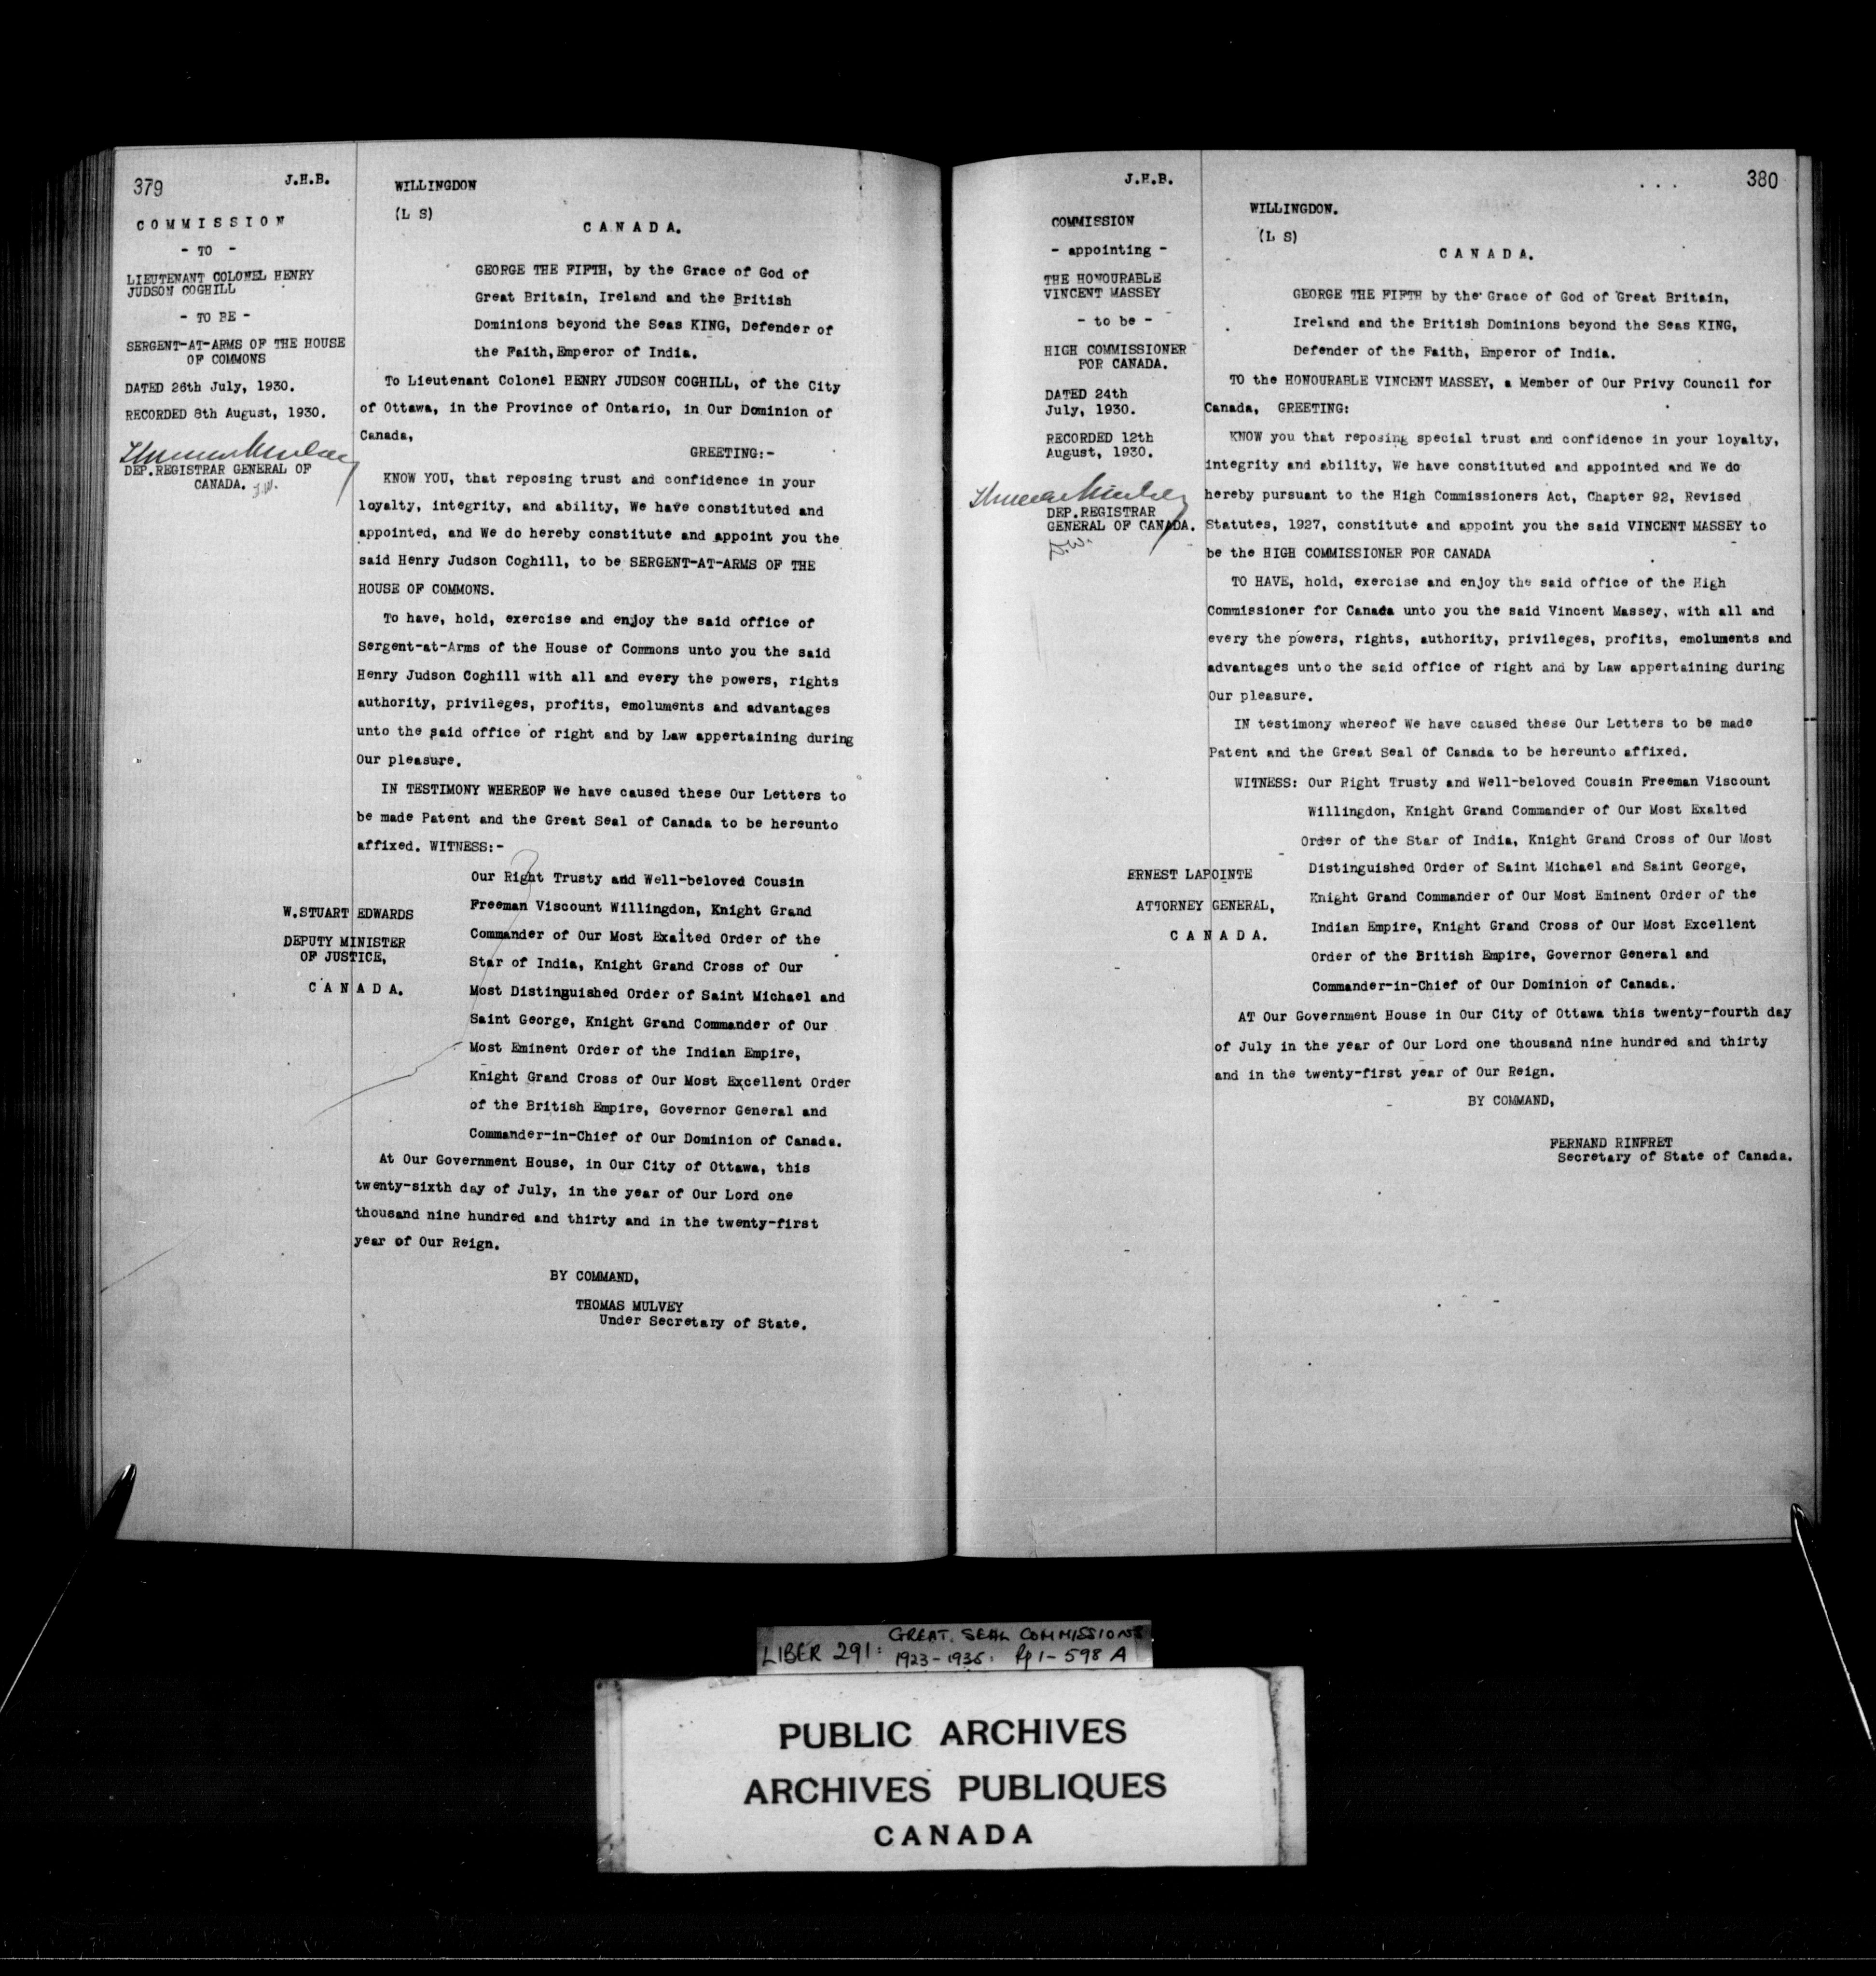 379
J.H.B.
COMMISSION
- TO -
LIEUTENANT COLONEL HENRY
JUDSON COGHILL
- TO BE -
SERGENT-AT-ARMS OF THE HOUSE
OF COMMONS
DATED 26th July, 1930.
RECORDED 8th August, 1930.
DEP.REGISTRAR GENERAL OF
CANADA.
W.STUART EDWARDS
DEPUTY MINISTER
OF JUSTICE,
CANADA.
WILLINGDON
(L S)
CANADA.
GEORGE THE FIFTH, by the Grace of God of
Great Britain, Ireland and the British
Dominions beyond the Seas KING, Defender of
the Faith, Emperor of India.
To Lieutenant Colonel HENRY JUDSON COGHILL, of the City
of Ottawa, in the Province of Ontario, in Our Dominion of
Canada,
GREETING:-
KNOW YOU, that reposing trust and confidence in your
loyalty, integrity, and ability, We have constituted and
appointed, and We do hereby constitute and appoint you the
said Henry Judson Coghill, to be SERGENT-AT-ARMS OF THE
HOUSE OF COMMONS.
To have, hold, exercise and enjoy the said office of
Sergent-at-Arms of the House of Commons unto you the said
Henry Judson Coghill with all and every the powers, rights
authority, privileges, profits, emoluments and advantages
unto the said office of right and by Law appertaining during
Our pleasure.
IN TESTIMONY WHEREOF We have caused these Our Letters to
be made Patent and the Great Seal of Canada to be hereunto
affixed. WITNESS:-
Our Right Trusty and Well-beloved Cousin
Freeman Viscount Willingdon, Knight Grand
Commander of Our Most Exalted Order of the
Star of India, Knight Grand Cross of Our
Most Distinguished Order of Saint Michael and
Saint George, Knight Grand Commander of Our
Most Eminent Order of the Indian Empire,
Knight Grand Cross of Our Most Excellent Order
of the British Empire, Governor General and
Commander-in-Chief of Our Dominion of Canada.
At Our Government House, in Our City of Ottawa, this
twenty-sixth day of July, in the year of Our Lord one
thousand nine hundred and thirty and in the twenty-first
year of Our Reign.
BY COMMAND,
THOMAS MULVEY
Under Secretary of State.
380
J.H.B.
COMMISSION
- appointing -
THE HONOURABLE
VINCENT MASSEY
- to be -
HIGH COMMISSIONER
FOR CANADA.
DATED 24th
July, 1930.
RECORDED 12th
August, 1930.
DEP.REGISTRAR
GENERAL OF CANADA.
ERNEST LAPOINTE
ATTORNEY GENERAL,
CANADA.
WILLINGDON.
(L S)
CANADA.
GEORGE THE FIFTH by the Grace of God of Great Britain,
Ireland and the British Dominions beyond the Seas KING,
Defender of the Faith, Emperor of India.
TO the HONOURABLE VINCENT MASSEY, a Member of Our Privy Council for
Canada, GREETING:
KNOW you that reposing special trust and confidence in your loyalty,
integrity and ability, We have constituted and appointed and We do
hereby pursuant to the High Commissioners Act, Chapter 92, Revised
Statutes, 1927, constitute and appoint you the said VINCENT MASSEY to
be the HIGH COMMISSIONER FOR CANADA
TO HAVE, hold, exercise and enjoy the said office of the High
Commissioner for Canada unto you the said Vincent Massey, with all and
every the powers, rights, authority, privileges, profits, emoluments and
advantages unto the said office of right and by Law appertaining during
Our pleasure.
IN testimony whereof We have caused these Our Letters to be made
Patent and the Great Seal of Canada to be hereunto affixed.
WITNESS: Our Right Trusty and Well-beloved Cousin Freeman Viscount
Willingdon, Knight Grand Commander of Our Most Exalted
Order of the Star of India, Knight Grand Cross of Our Most
Distinguished Order of Saint Michael and Saint George,
Knight Grand Commander of Our Most Eminent Order of the
Indian Empire, Knight Grand Cross of Our Most Excellent
Order of the British Empire, Governor General and
Commander-in-Chief of Our Dominion of Canada.
AT Our Government House in Our City of Ottawa this twenty-fourth day
of July in the year of Our Lord one thousand nine hundred and thirty
and in the twenty-first year of Our Reign.
BY COMMAND,
FERNAND RINFRET
Secretary of State of Canada.
LIBER 291: GREAT SEAL COMMISSIONS
1923-1935. Pp 1-598 A
PUBLIC ARCHIVES
ARCHIVES PUBLIQUES
CANADA